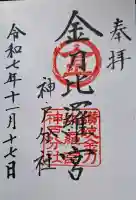 奉拝
金刀比羅宮
神戸分社
令和七年十一月十七日